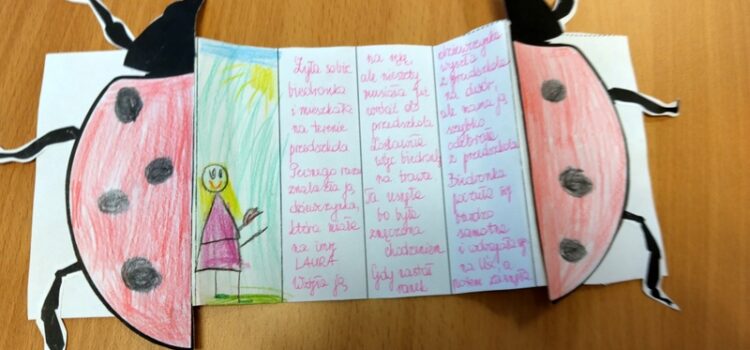 Żyła sobie
biedronka
i mieszkała
na terenie
przedszkola
Pewnego razu
znalazła ją
dziewczynka,
która miała
na imię
LAURA
Wzięła ją
na rękę,
ale niestety
musiała już
wracać do
przedszkola
Zostawiła
więc biedronkę
na trawie
Ta usnęła
bo była
zmęczona
chodzeniem
Gdy nastał
ranek
dziewczynka
wyszła
z przedszkola
na dwór,
ale mama ją
szybko
odebrała
z przedszkola
Biedronka
poczuła się
bardzo
samotna
i wdrapała się
na liść, a
potem zasnęła